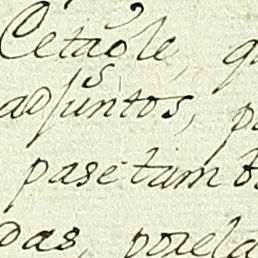 Cetaõle, q
adjuntos, p
pase tam b
das, porela